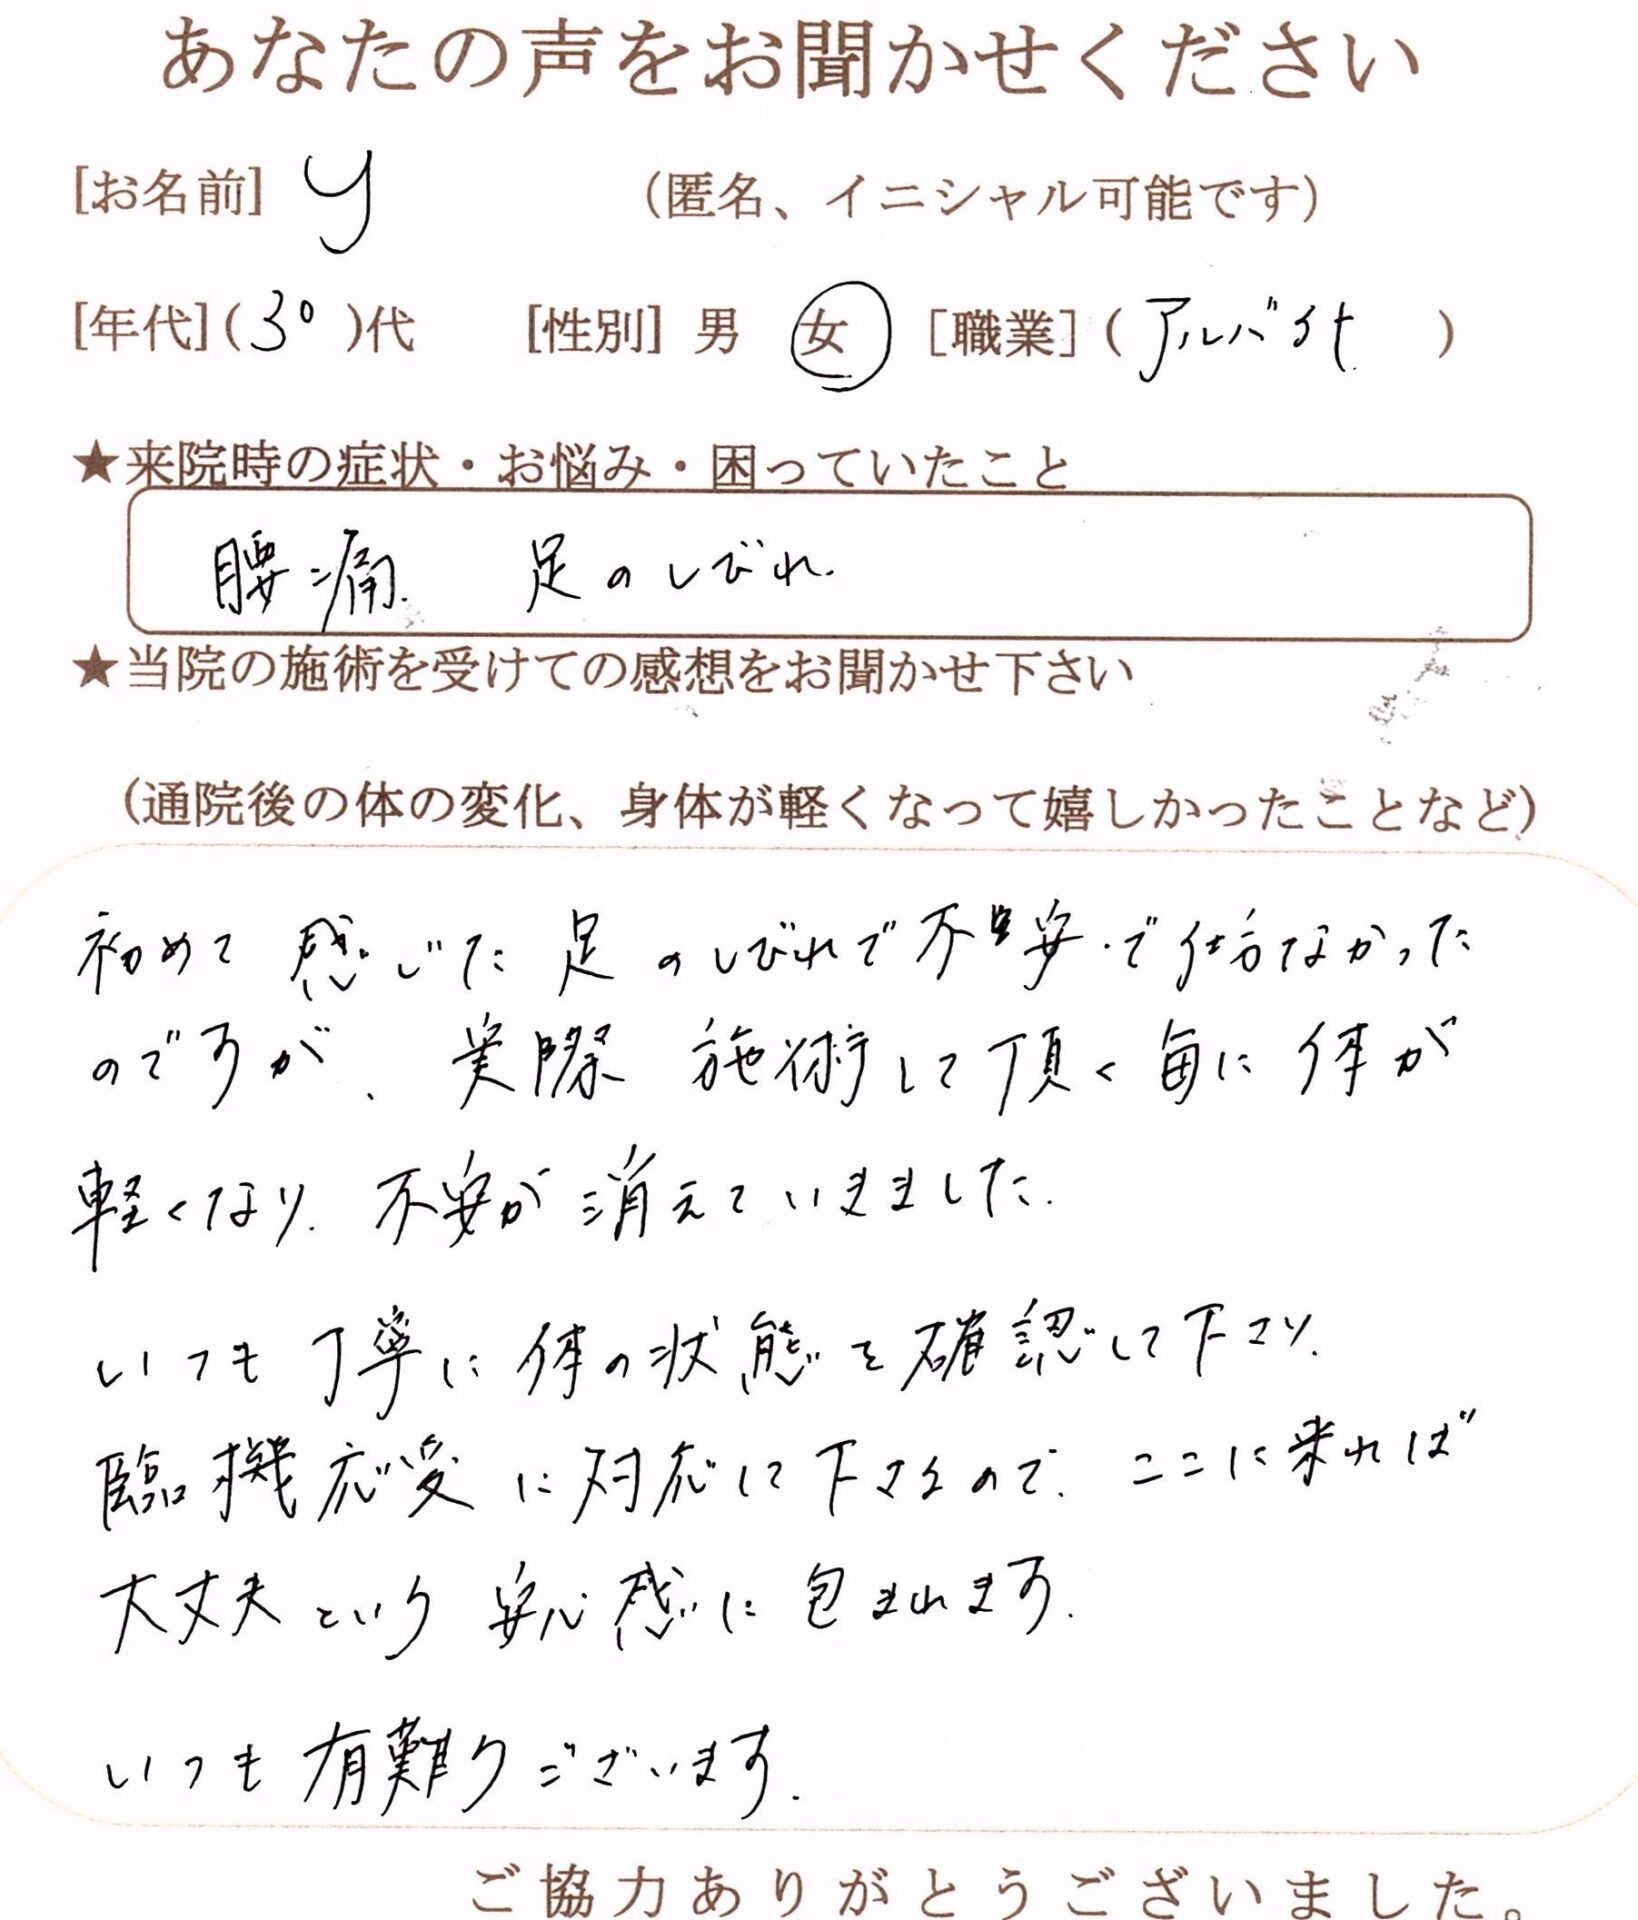 あなたの声をお聞かせください
[お名前] y (匿名、イニシャル可能です)
[年代](30)代 [性別] 男 女 [職業](アルバイト)
★来院時の症状・お悩み・困っていたこと
腰痛. 足のしびれ.
★当院の施術を受けての感想をお聞かせ下さい
(通院後の体の変化、身体が軽くなって嬉しかったことなど)
初めて感じた足のしびれで不安で仕方なかった
のですが、実際施術して頂く毎に体が
軽くなり、不安が消えていきました.
いつも丁寧に体の状態を確認して下さり、
臨機応変に対応して下さるので、ここに来れば
大丈夫という安心感に包まれます.
いつも有難うございます.
ご協力ありがとうございました。